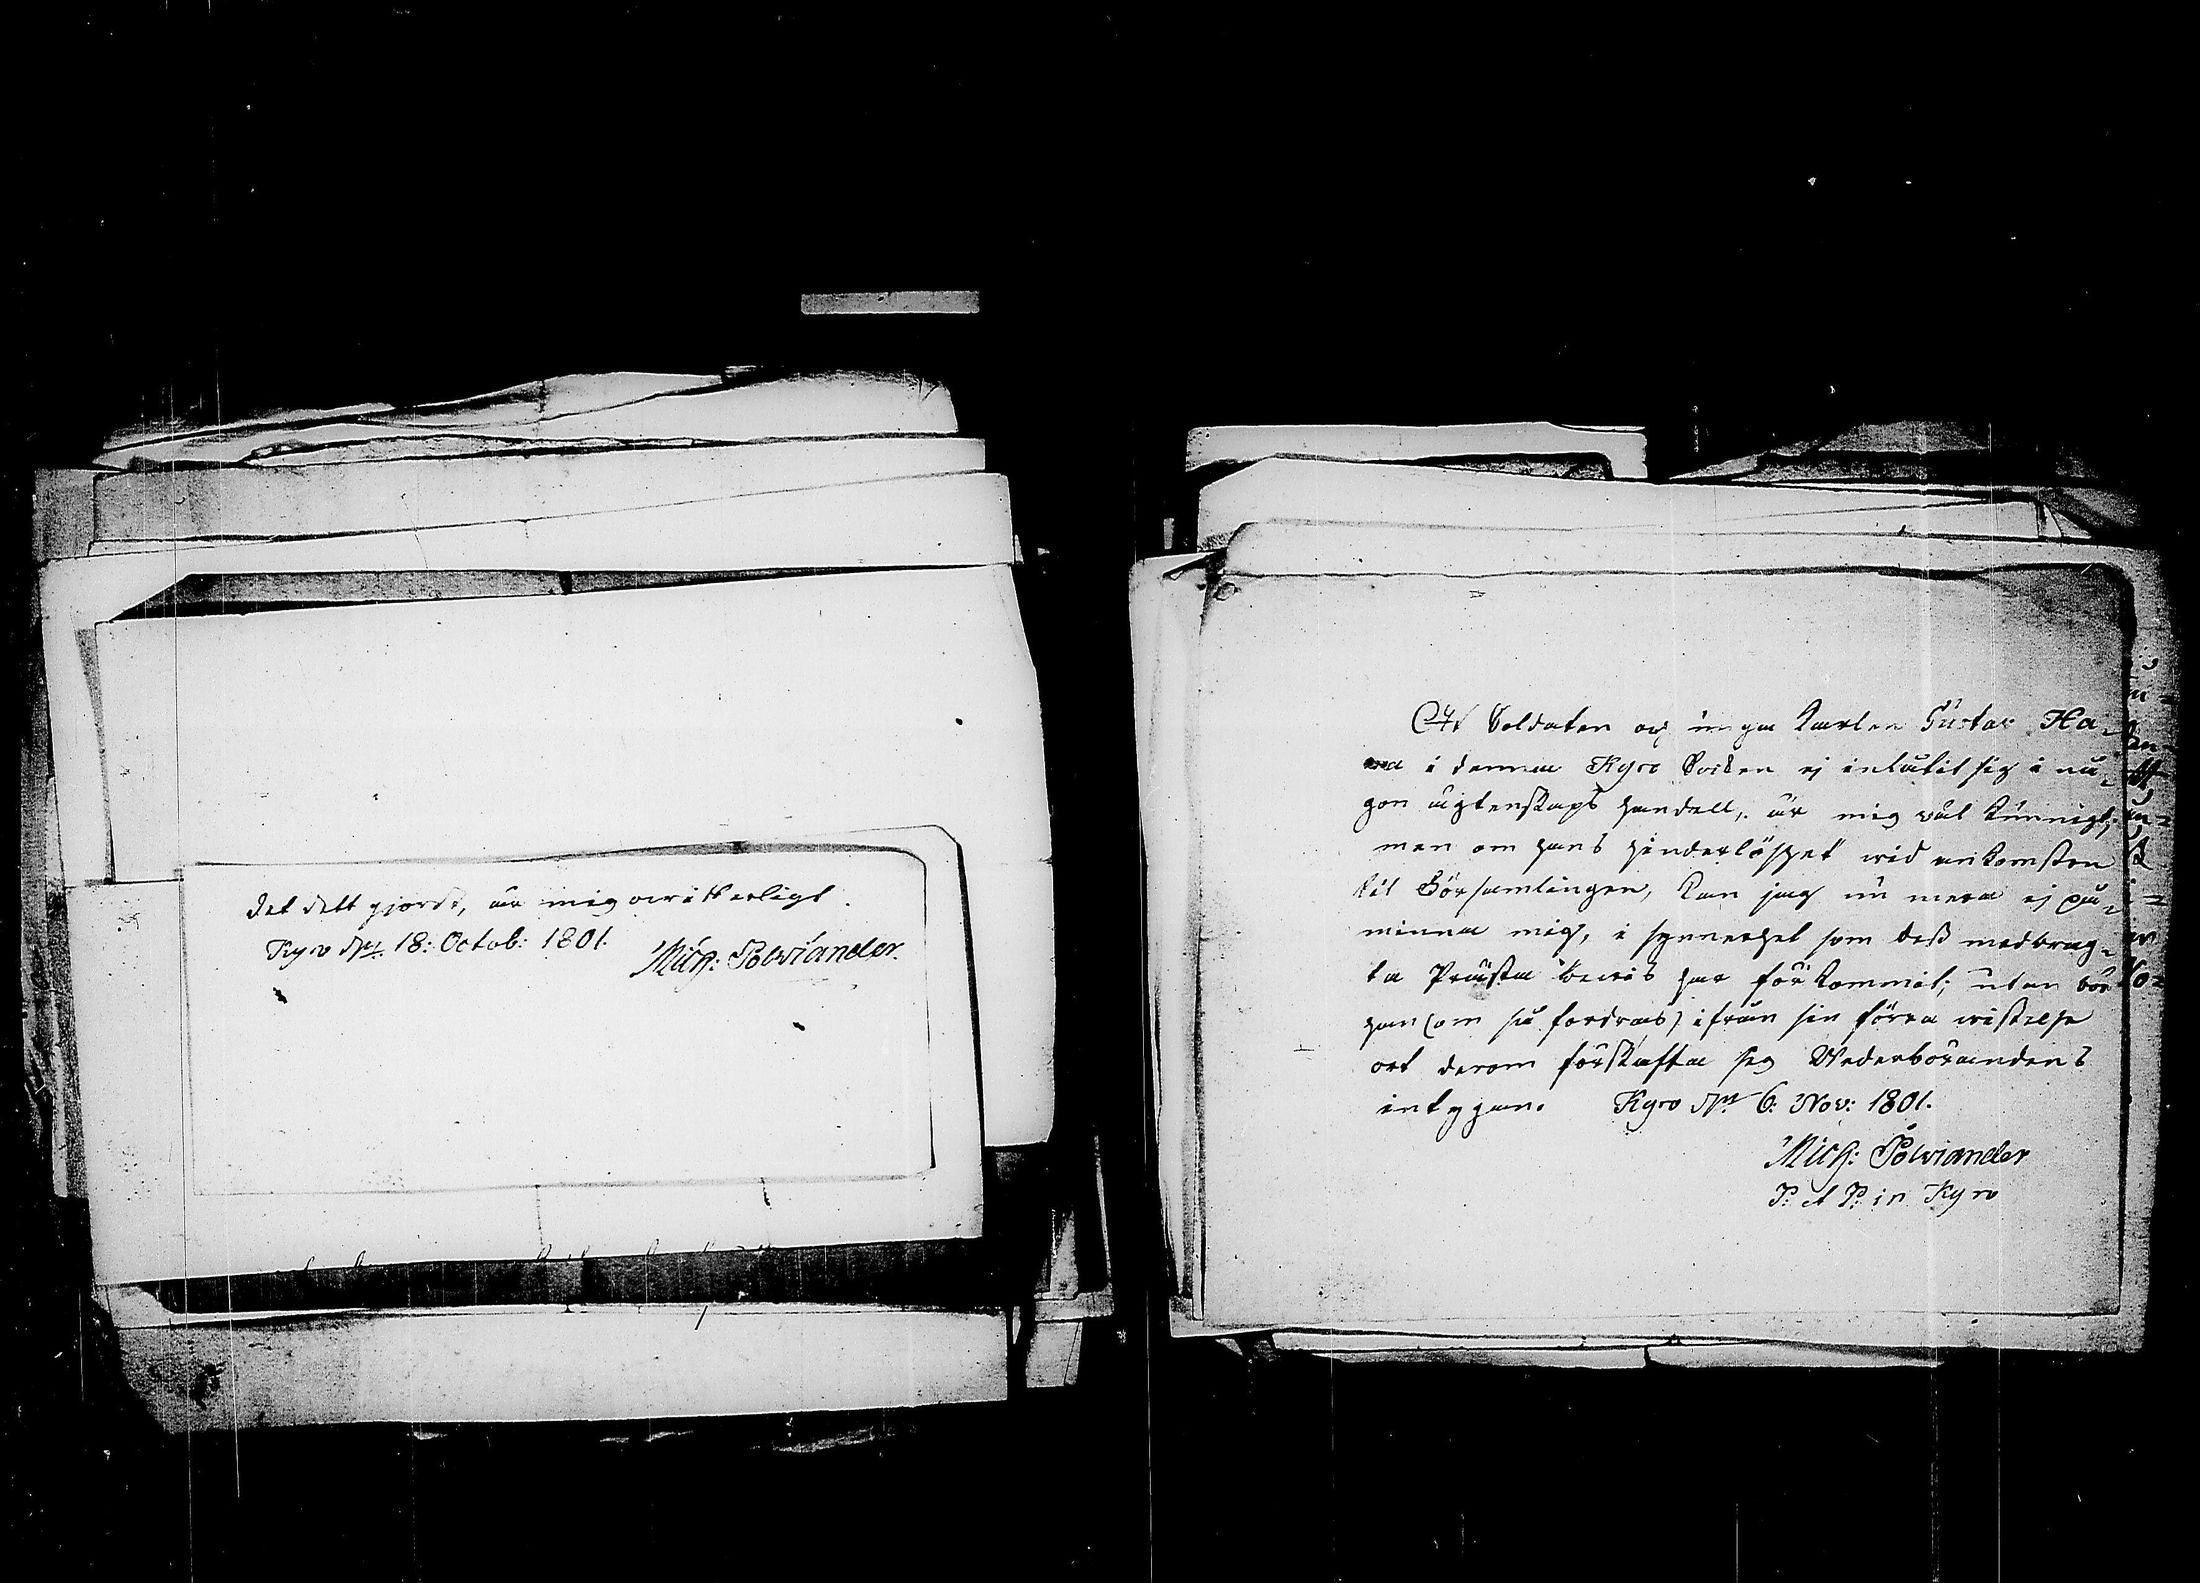 det dett gjordt, är mig owitterligt.
Kyro d. 18: Octob: 1801.
Mich: Polviander.
At Soldaten och unga Karlen Gustav Ha-
na i denna Kyro Socken ej inlåtit sig i nå-
gon ägtenskaps handell, är mig väl kunnigt;
men om hans hinderlöshet wid ankomsten
til Församlingen, kan jag nu mera ej på-
minna mig, i synnerhet som dess medbrag-
ta Prästa bewis har förkommit; utan bör
han (om så fordras) ifrån sin förra wistelse
ort derom förskaffa sig Wederbörandens
intygan. Kyro d. 6: Nov: 1801.
Mich: Polviander
P: et P: in Kyro